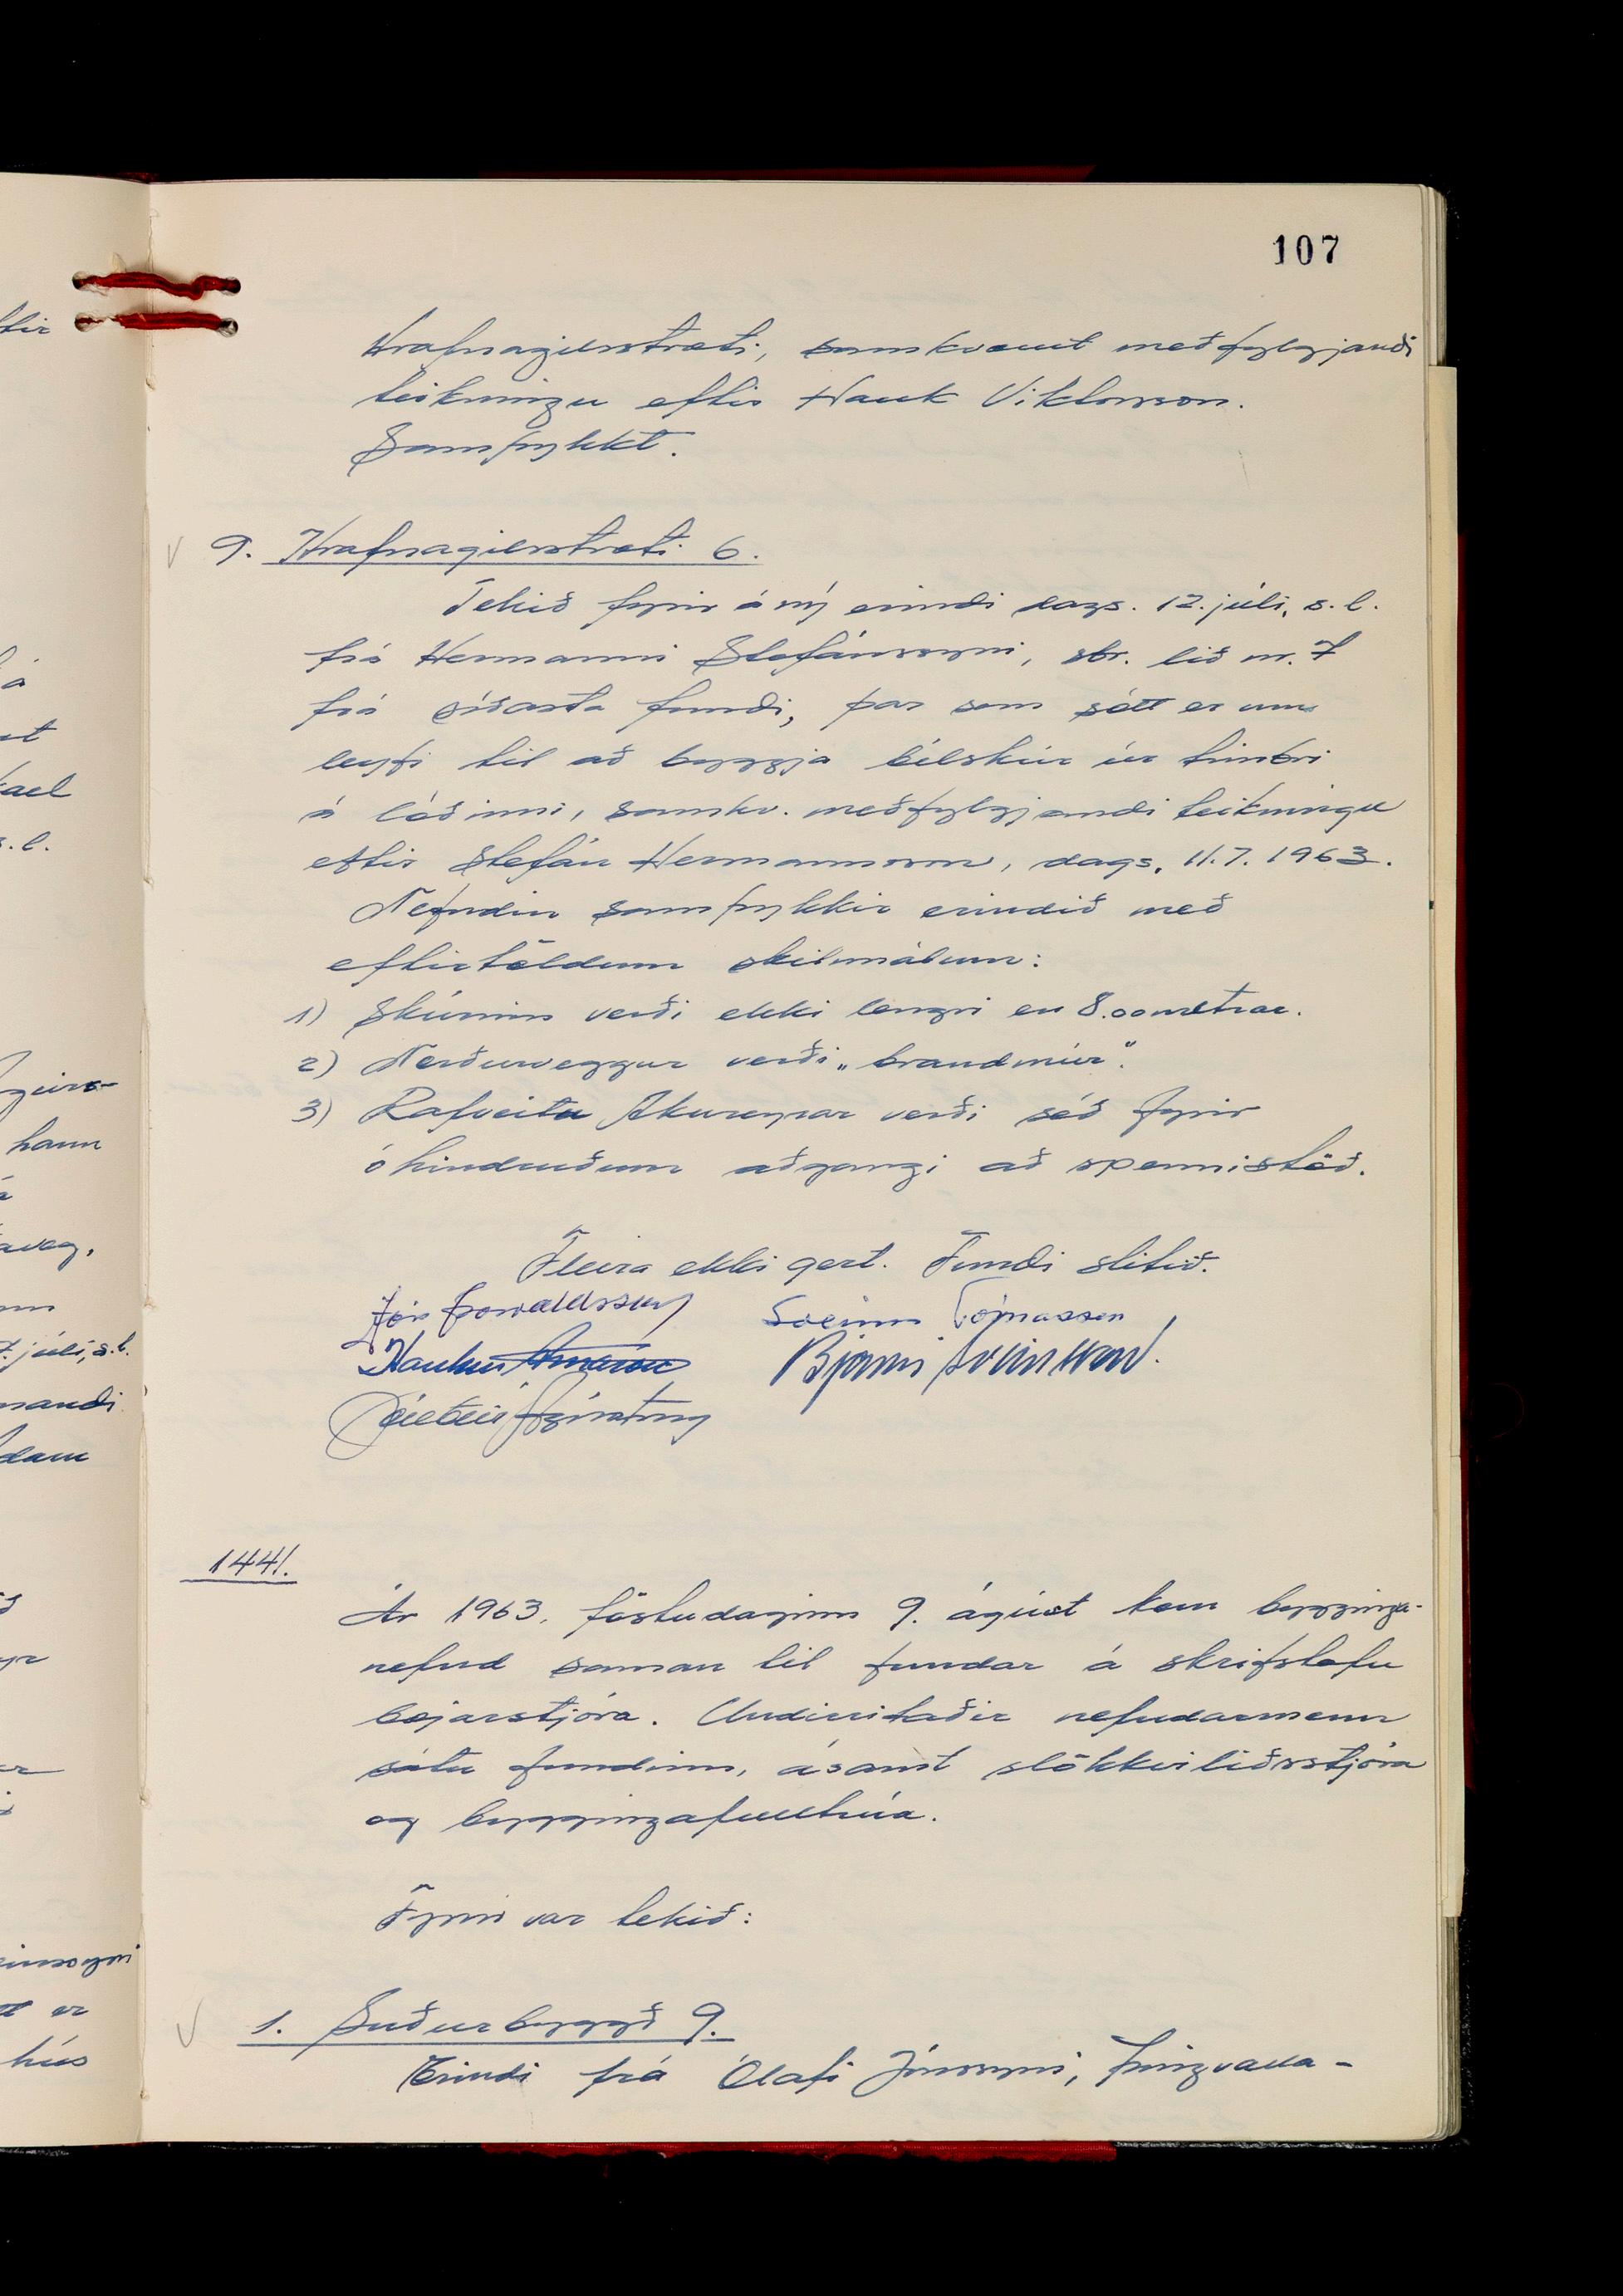 107
Hrafnagilsstræti, samkvæmt meðfylgjandi
teikningu eftir Hauk Viktorsson.
Samþykkt.
9. Hrafnagilsstræti 6.
Tekið fyrir á ný erindi dags. 12. júlí, s.l.
frá Hermanni Stefánssyni, sbr. lið nr. 7
frá síðasta fundi, þar sem sótt er um
leyfi til að byggja bílskúr úr timbri
á lóðinni, samkv. meðfylgjandi teikningu
eftir Stefán Hermannsson, dags. 11.7. 1963.
Nefndin samþykkir erindið með
eftirtöldum skilmálum:
1) Skúrinn verði ekki lengri en 8.00 metrar.
2) Norðurveggur verði „brandmúr".
3) Rafveitu Akureyrar verði séð fyrir
óhindruðum aðgangi að spennistöð.
Fleira ekki gert. Fundi slitið.
Jón Þorvaldsson Sveinn Tómasson
Haukur Árnason Bjarni Sveinsson.
144!.
Ár 1963, föstudaginn 9. ágúst kom bygginga-
nefnd saman til fundar á skrifstofu
bæjarstjóra. Undirritaðir nefndarmenn
sátu fundinn, ásamt slökkviliðsstjóra
og byggingafulltrúa.
Fyrir var tekið:
1. Suðurbyggð 9.
Erindi frá Ólafi Jónssyni, Þingvalla-
tir
á
ael
s.l.
hann
aveg,
júlí, s.l.
nandi
er
hús